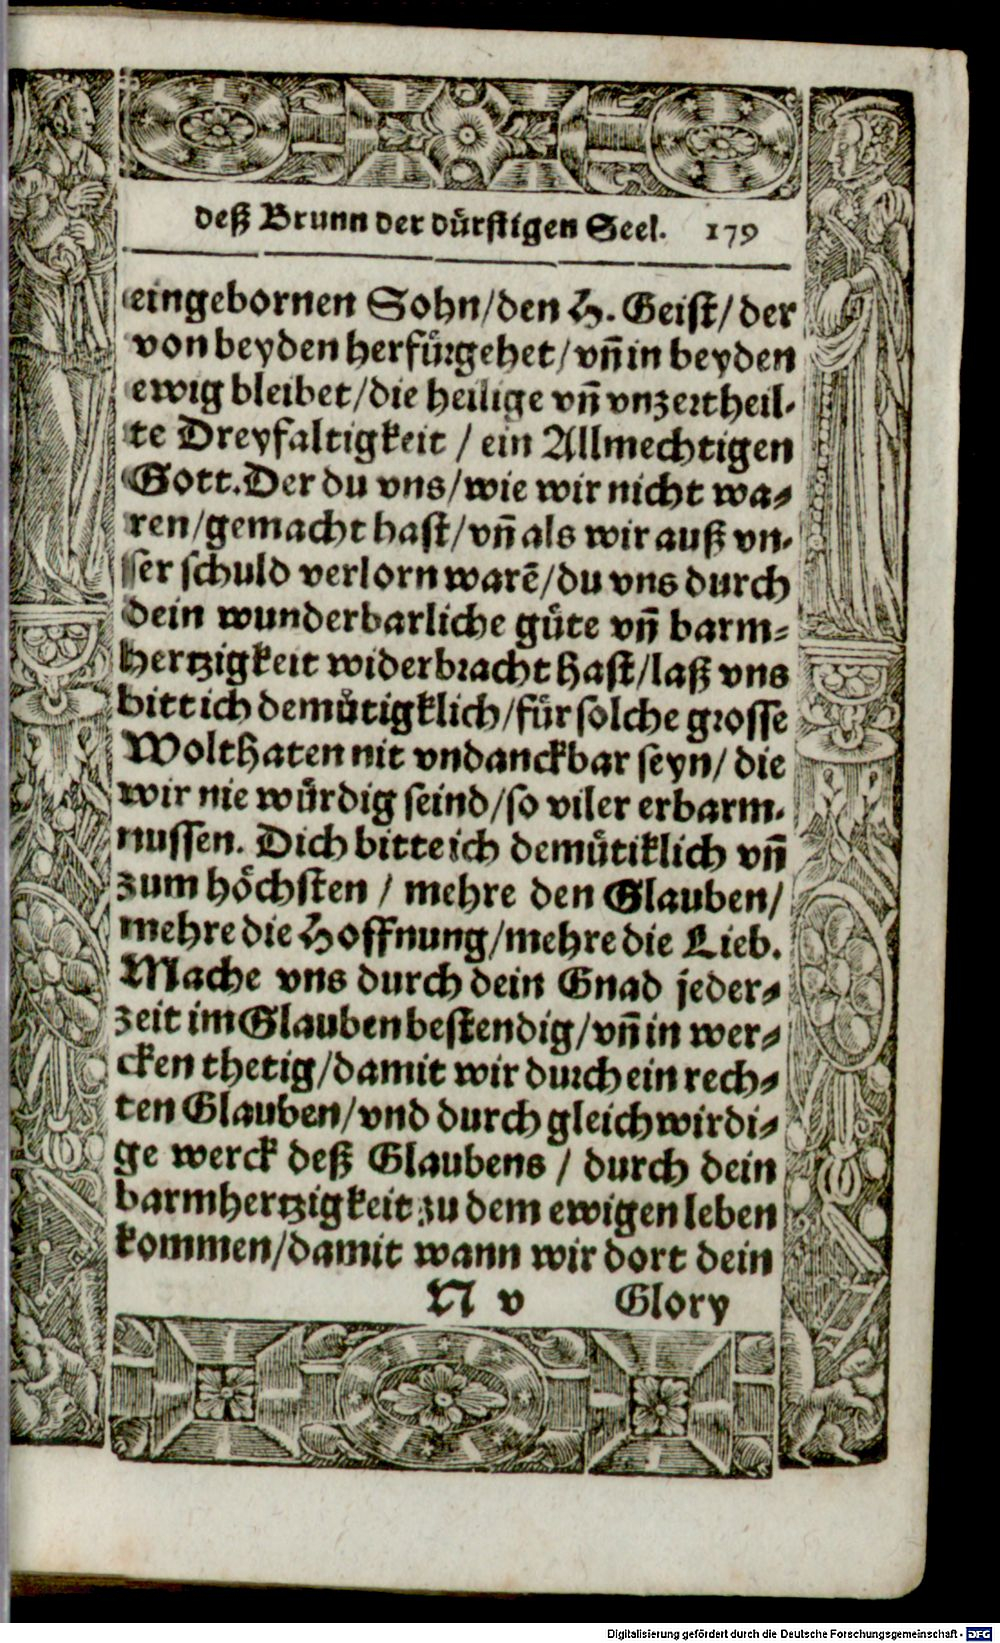 deß Brunn der dürstigen Seel. 179
eingebornen Sohn/den H. Geist/ der
von beyden herfürgehet/ vn̄ in beyden
ewig bleibet/die heilige vn̄ vnzertheil-
te Dreyfaltigkeit / ein Allmechtigen
Gott. Der du vns/wie wir nicht wa-
ren/gemacht hast/ vn̄ als wir auß vn-
ser schuld verlorn warē/du vns durch
dein wunderbarliche güte vn̄ barm-
hertzigkeit widerbracht hast/laß vns
bitt ich demütigklich/für solche grosse
Wolthaten nit vndanckbar seyn/ die
wir nie würdig seind/so viler erbarm-
nussen. Dich bitte ich demütiklich vn̄
zum höchsten / mehre den Glauben/
mehre die Hoffnung/mehre die Lieb.
Mache vns durch dein Gnad jeder-
zeit im Glauben bestendig/vn̄ in wer-
cken thetig/damit wir durch ein rech-
ten Glauben/vnd durch gleichwirdi-
ge werck deß Glaubens / durch dein
barmhertzigkeit zu dem ewigen leben
kommen/damit wann wir dort dein
N v Glory
Digitalisierung gefördert durch die Deutsche Forschungsgemeinschaft - DFG